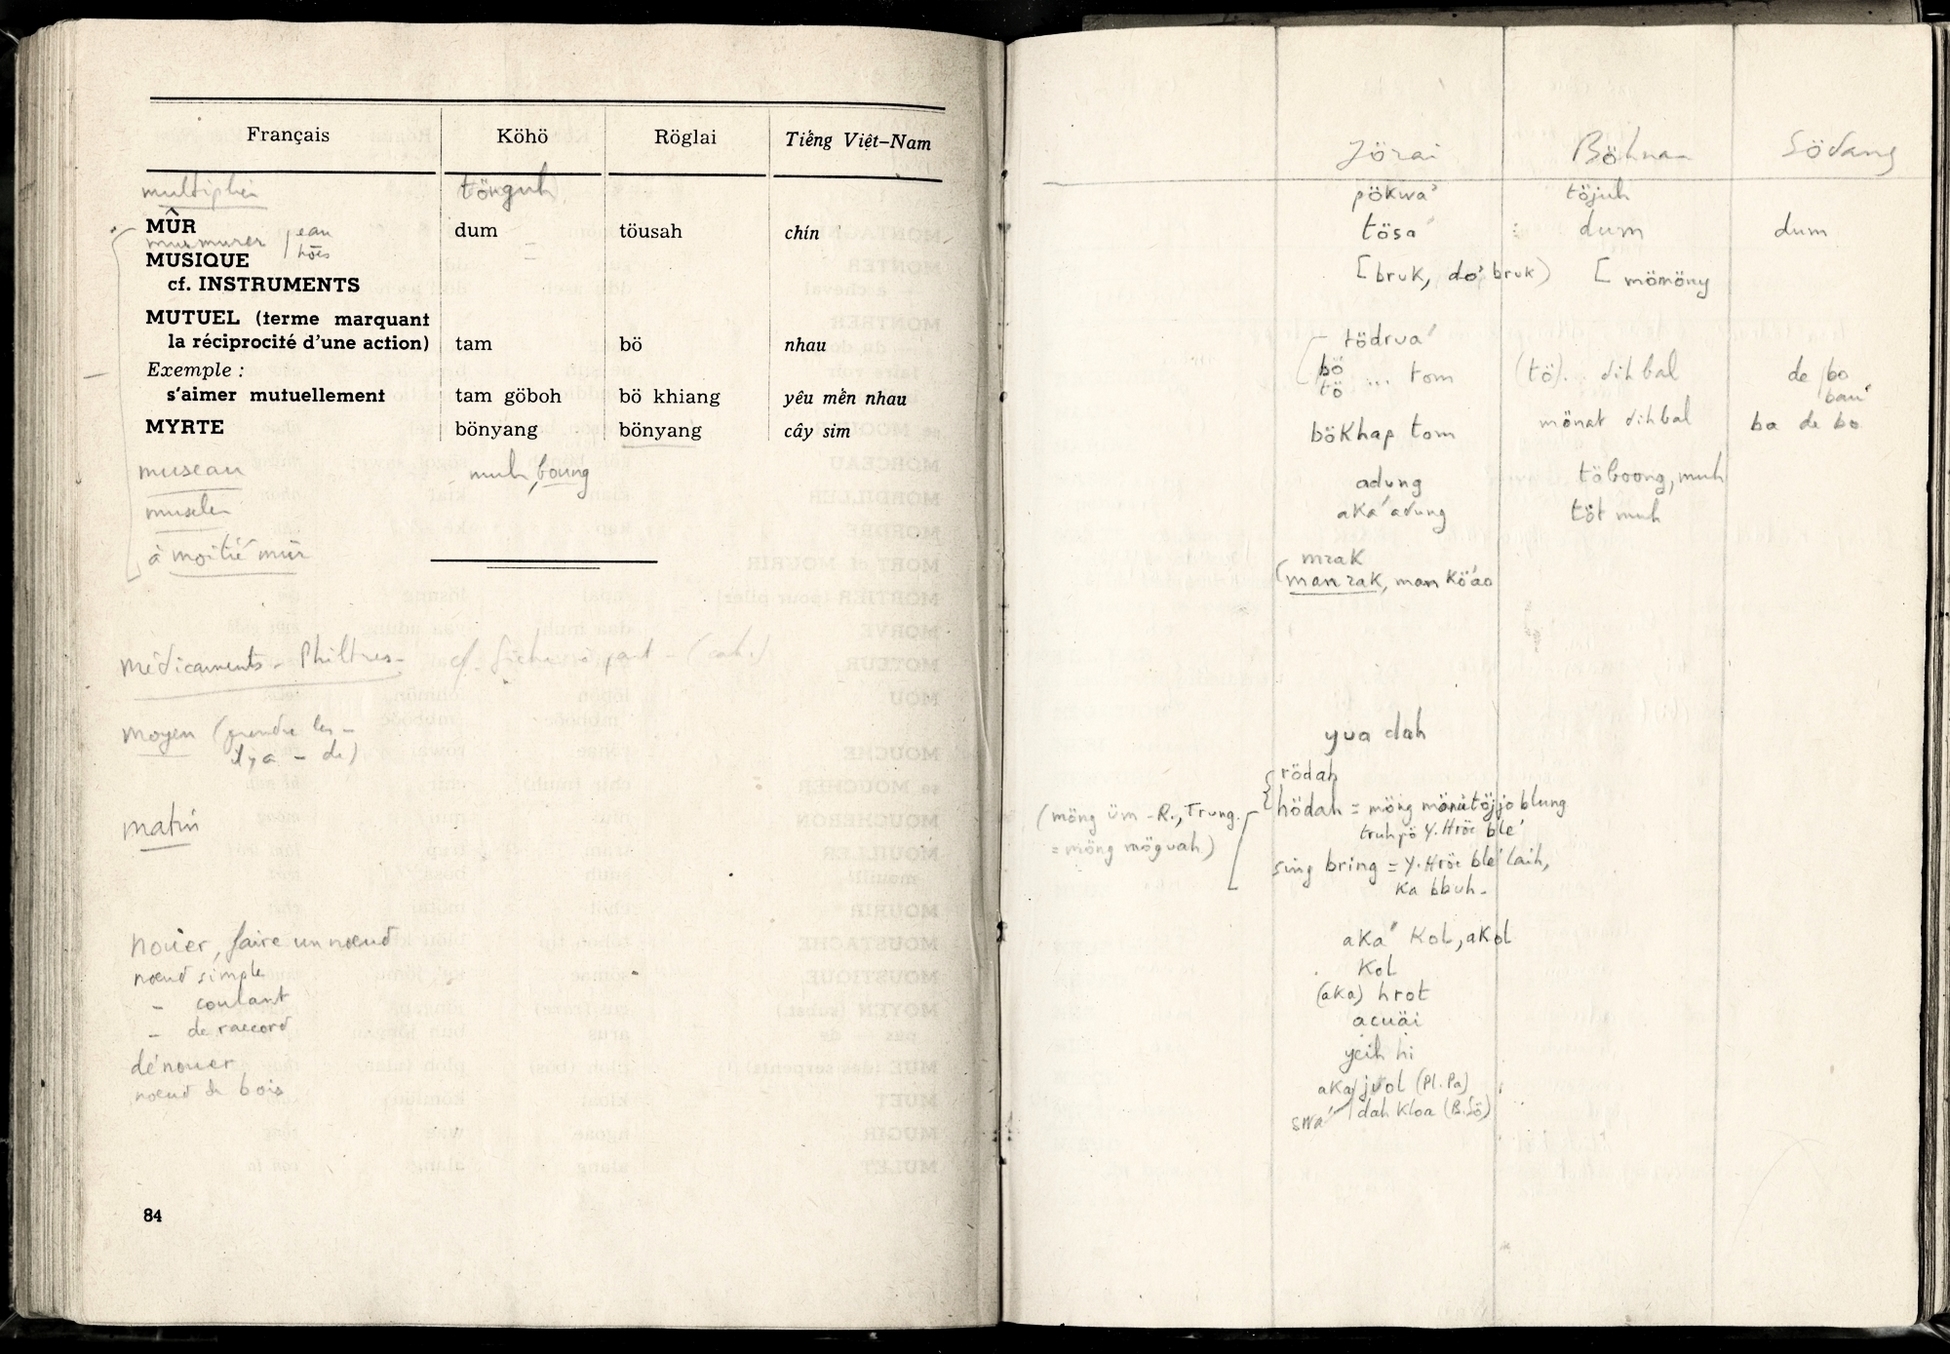 Français Köhö Röglai Tiếng Việt-Nam
multiplier tönguh
MÛR dum töusah chín
murmurer / eau
MUSIQUE
cf. INSTRUMENTS
MUTUEL (terme marquant
la réciprocité d'une action) tam bö nhau
Exemple :
s'aimer mutuellement tam göboh bö khiang yêu mến nhau
MYRTE bönyang bönyang cây sim
museau muh, boung
museler
à moitié mûr
Médicaments - Philtres - cf. fichier à part -
moyen (prendre les -
il y a - de)
matin
nouer, faire un nœud
nœud simple
- coulant
- de raccord
dénouer
nœud de bois
84
Jörai Böhnar Södang
pökwa' töjuh
tösa dum dum
[bruk, do' bruk) [ mömöny
tödrua'
bö
tö ... tom (tö).. dih bal de /bo
bau'
bökhap tom mönat dih bal ba de bo
adung töboong, muh
aka' adung töt muh
mrak
(man rak, man kö'ao
yua dah
rödah
hödah = möng mönutöjjo blung
truh pö Y. Hröe ble'
(möng üm - R., Trung.
= möng möguah)
sing bring = Y. Hröe ble' laih,
ka bbuh -
aka' kol, akol
kol
(aka) hrot
acuäi
yeih hi
aka/ juol (Pl. Pa)
swa' dah kloa (B. Sö)